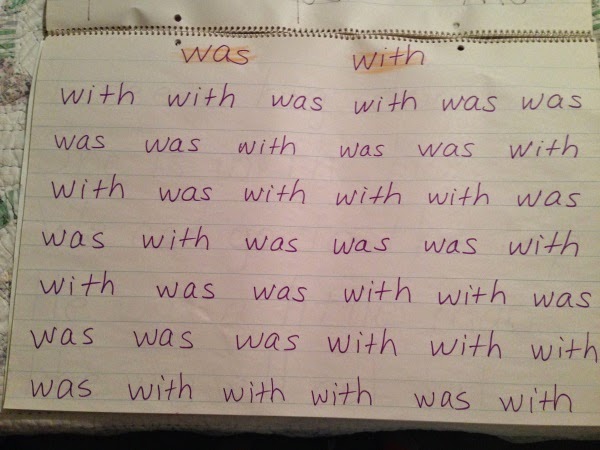 was with
with with was with was was
was was with was was with
with was with with with was
was with was was was with
with was was with with was
was was was with with with
was with with with was with